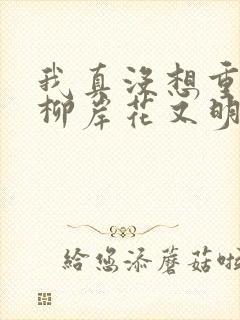 我真没想重
柳岸花又明
给您添蘑菇啦